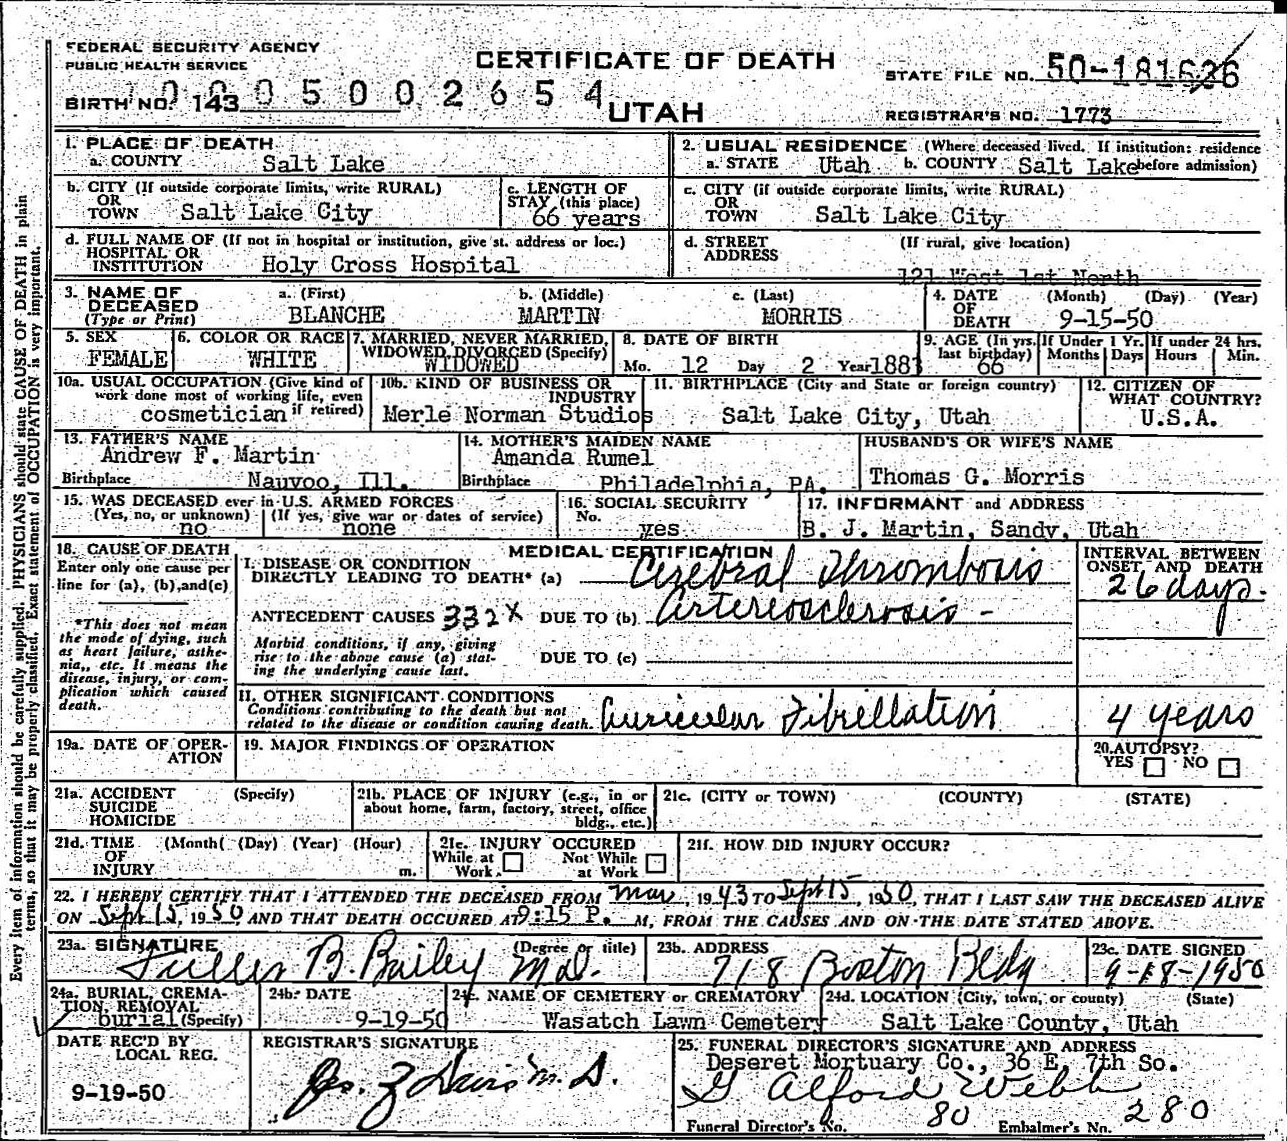 FEDERAL SECURITY AGENCY
PUBLIC HEALTH SERVICE
CERTIFICATE OF DEATH
STATE FILE NO. 50-181626
BIRTH NO. 143
0005002654
UTAH
REGISTRAR'S NO. 1773
1. PLACE OF DEATH
a. COUNTY Salt Lake
2. USUAL RESIDENCE (Where deceased lived. If institution: residence before admission)
a. STATE Utah b. COUNTY Salt Lake
b. CITY (If outside corporate limits, write RURAL)
OR
TOWN Salt Lake City
c. LENGTH OF
STAY (this place)
66 years
c. CITY (if outside corporate limits, write RURAL)
OR
TOWN Salt Lake City
d. FULL NAME OF (If not in hospital or institution, give st. address or loc.)
HOSPITAL OR
INSTITUTION Holy Cross Hospital
d. STREET (If rural, give location)
ADDRESS
121 West 1st North
3. NAME OF
DECEASED
(Type or Print)
a. (First) b. (Middle) c. (Last)
BLANCHE MARTIN MORRIS
4. DATE (Month) (Day) (Year)
OF
DEATH 9-15-50
5. SEX
FEMALE
6. COLOR OR RACE
WHITE
7. MARRIED, NEVER MARRIED,
WIDOWED, DIVORCED (Specify)
WIDOWED
8. DATE OF BIRTH
Mo. 12 Day 2 Year 1883
9. AGE (In yrs. last birthday)
66
If Under 1 Yr. Months Days
If under 24 hrs. Hours Min.
10a. USUAL OCCUPATION (Give kind of
work done most of working life, even
if retired)
cosmetician
10b. KIND OF BUSINESS OR
INDUSTRY
Merle Norman Studios
11. BIRTHPLACE (City and State or foreign country)
Salt Lake City, Utah
12. CITIZEN OF
WHAT COUNTRY?
U.S.A.
13. FATHER'S NAME
Andrew F. Martin
Birthplace Nauvoo, Ill.
14. MOTHER'S MAIDEN NAME
Amanda Rumel
Birthplace Philadelphia, PA.
HUSBAND'S OR WIFE'S NAME
Thomas G. Morris
15. WAS DECEASED ever in U.S. ARMED FORCES
(Yes, no, or unknown) (If yes, give war or dates of service)
no none
16. SOCIAL SECURITY
No.
yes
17. INFORMANT and ADDRESS
B. J. Martin, Sandy, Utah
18. CAUSE OF DEATH
Enter only one cause per
line for (a), (b), and (c)
*This does not mean
the mode of dying, such
as heart failure, asthe-
nia,, etc. It means the
disease, injury, or com-
plication which caused
death.
MEDICAL CERTIFICATION
I. DISEASE OR CONDITION
DIRECTLY LEADING TO DEATH* (a) Cerebral Thrombosis
ANTECEDENT CAUSES 332X DUE TO (b) Artereosclerosis -
Morbid conditions, if any, giving
rise to the above cause (a) stat-
ing the underlying cause last.
DUE TO (c)
INTERVAL BETWEEN
ONSET AND DEATH
26 days.
II. OTHER SIGNIFICANT CONDITIONS
Conditions contributing to the death but not
related to the disease or condition causing death.
Auricular Fibrellation
4 years
19a. DATE OF OPER-
ATION
19. MAJOR FINDINGS OF OPERATION
20. AUTOPSY?
YES NO
21a. ACCIDENT (Specify)
SUICIDE
HOMICIDE
21b. PLACE OF INJURY (e.g., in or
about home, farm, factory, street, office
bldg., etc.)
21c. (CITY or TOWN) (COUNTY) (STATE)
21d. TIME (Month( (Day) (Year) (Hour)
OF
INJURY m.
21e. INJURY OCCURED
While at Work Not While at Work
21f. HOW DID INJURY OCCUR?
22. I HEREBY CERTIFY THAT I ATTENDED THE DECEASED FROM Mar, 1943 TO Sept 15, 1950, THAT I LAST SAW THE DECEASED ALIVE
ON Sept 15, 1950 AND THAT DEATH OCCURED AT 9:15 P. M, FROM THE CAUSES AND ON THE DATE STATED ABOVE.
23a. SIGNATURE (Degree or title)
Fuller B Bailey M.D.
23b. ADDRESS
718 Boston Bldg
23c. DATE SIGNED
9-18-1950
24a. BURIAL, CREMA-
TION, REMOVAL
burial (Specify)
24b. DATE
9-19-50
24c. NAME OF CEMETERY or CREMATORY
Wasatch Lawn Cemetery
24d. LOCATION (City, town, or county) (State)
Salt Lake County, Utah
DATE REC'D BY
LOCAL REG.
9-19-50
REGISTRAR'S SIGNATURE
Jos. Z Davis M.D.
25. FUNERAL DIRECTOR'S SIGNATURE AND ADDRESS
Deseret Mortuary Co., 36 E. 7th So.
G Alford Webb
Funeral Director's No. 80 Embalmer's No. 280
Every item of information should be carefully supplied. PHYSICIANS should state CAUSE OF DEATH in plain
terms, so that it may be properly classified. Exact statement of OCCUPATION is very important.